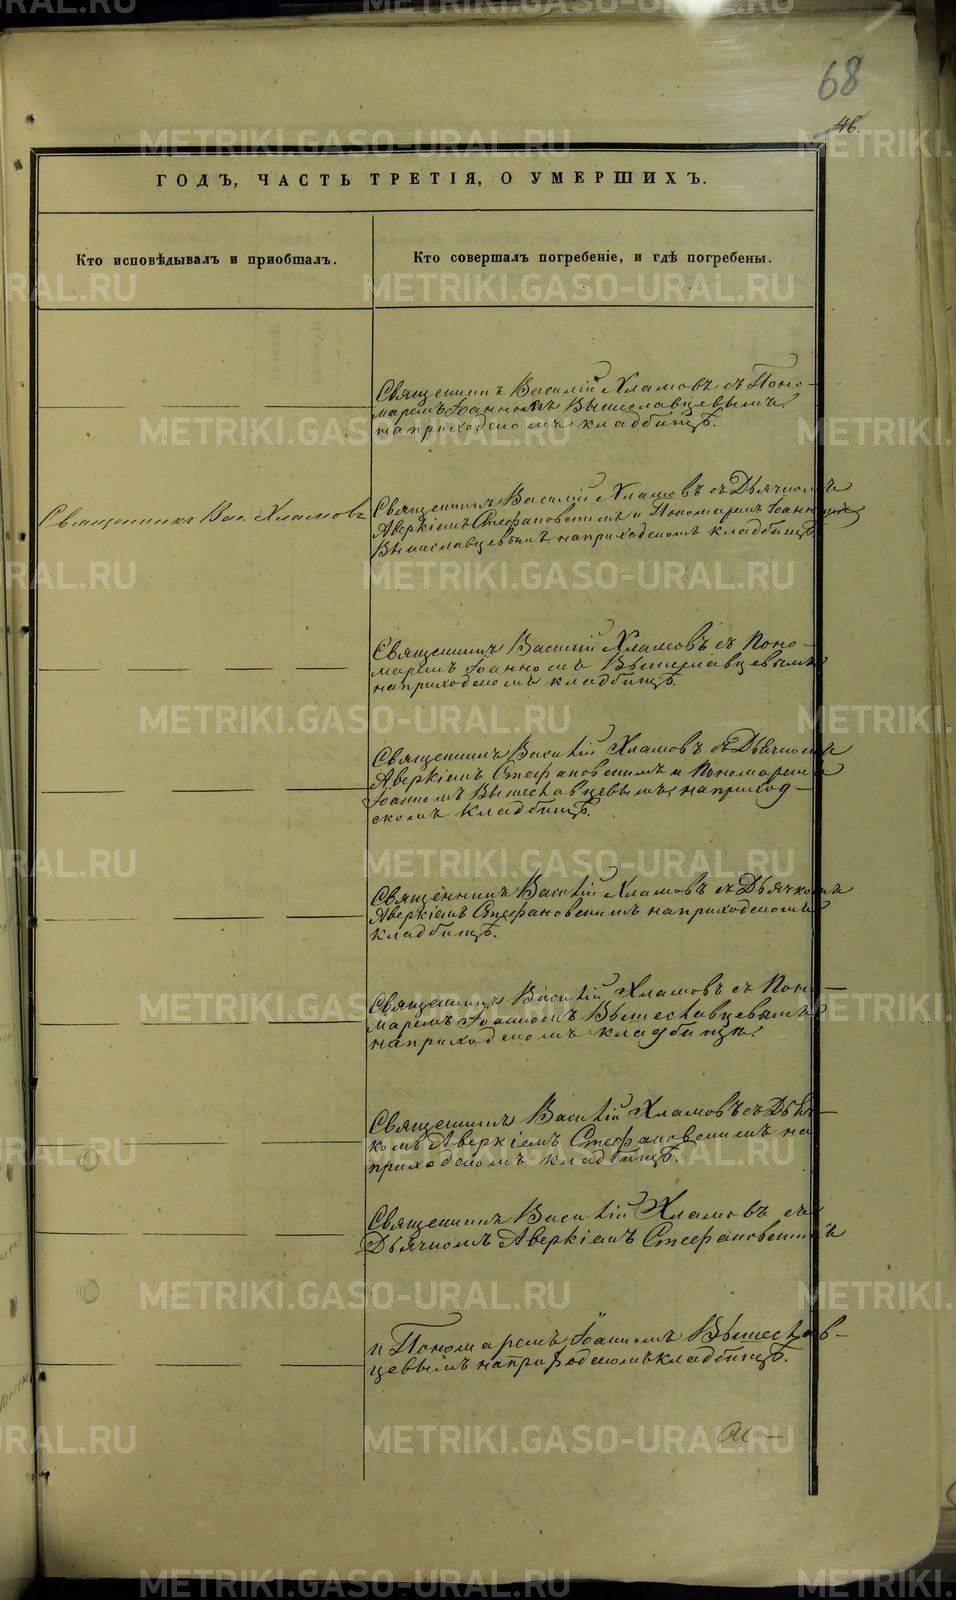 68
46.
ГОДЪ, ЧАСТЬ ТРЕТІЯ, О УМЕРШИХЪ.
Кто исповѣдывалъ и приобщалъ.
Кто совершалъ погребеніе, и гдѣ погребены.
Священникъ Василій Хламовъ съ Поно-
маремъ Іоанномъ Вышеславцевымъ
на приходскомъ кладбищѣ.
Священникъ Вас. Хламовъ
Священникъ Василій Хламовъ съ Дьячкомъ
Аверкіемъ Стефановскимъ и Пономаремъ Іоанномъ
Вышеславцевымъ на приходскомъ кладбищѣ.
Священникъ Василій Хламовъ съ Поно-
маремъ Іоанномъ Вышеславцевымъ
на приходскомъ кладбищѣ.
Священникъ Василій Хламовъ съ Дьячкомъ
Аверкіемъ Стефановскимъ и Пономаремъ
Іоанномъ Вышеславцевымъ, на приход-
скомъ кладбищѣ.
Священникъ Василій Хламовъ съ Дьячкомъ
Аверкіемъ Стефановскимъ на приходскомъ
кладбищѣ.
Священникъ Василій Хламовъ съ Поно-
маремъ Іоанномъ Вышеславцевымъ
на приходскомъ кладбищѣ.
Священникъ Василій Хламовъ съ Дьяч-
комъ Аверкіемъ Стефановскимъ на
приходскомъ кладбищѣ.
Священникъ Василій Хламовъ съ
Дьячкомъ Аверкіемъ Стефановскимъ
и Пономаремъ Іоанномъ Вышеслав-
цевымъ на приходскомъ кладбищѣ.
METRIKI.GASO-URAL.RU